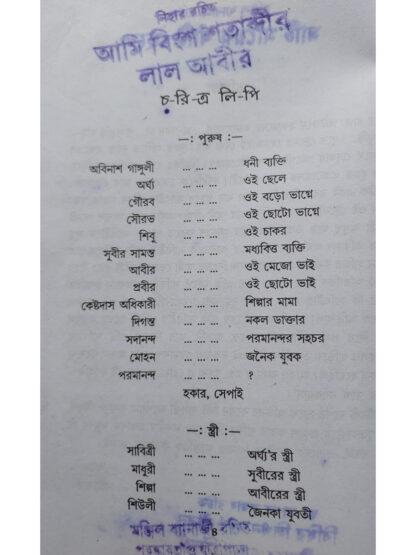 নিহার রঞ্জিত
আমি বিংশ শতাব্দীর
লাল আবীর
চ-রি-ত্র লি-পি
—: পুরুষ :—
অবিনাশ গাঙ্গুলী ... ... ... ধনী ব্যক্তি
অর্ঘ্য ... ... ... ওই ছেলে
গৌরব ... ... ... ওই বড়ো ভাগ্নে
সৌরভ ... ... ... ওই ছোটো ভাগ্নে
শিবু ... ... ... ওই চাকর
সুবীর সামন্ত ... ... ... মধ্যবিত্ত ব্যক্তি
আবীর ... ... ... ওই মেজো ভাই
প্রবীর ... ... ... ওই ছোটো ভাই
কেষ্টদাস অধিকারী ... ... ... শিল্পার মামা
দিগন্ত ... ... ... নকল ডাক্তার
সদানন্দ ... ... ... পরমানন্দর সহচর
মোহন ... ... ... জনৈক যুবক
পরমানন্দ ... ... ... ?
হকার, সেপাই
—: স্ত্রী :—
সাবিত্রী ... ... ... অর্ঘ্য'র স্ত্রী
মাধুরী ... ... ... সুবীরের স্ত্রী
শিল্পা ... ... ... আবীরের স্ত্রী
শিউলী ... ... ... জৈনকা যুবতী
৪